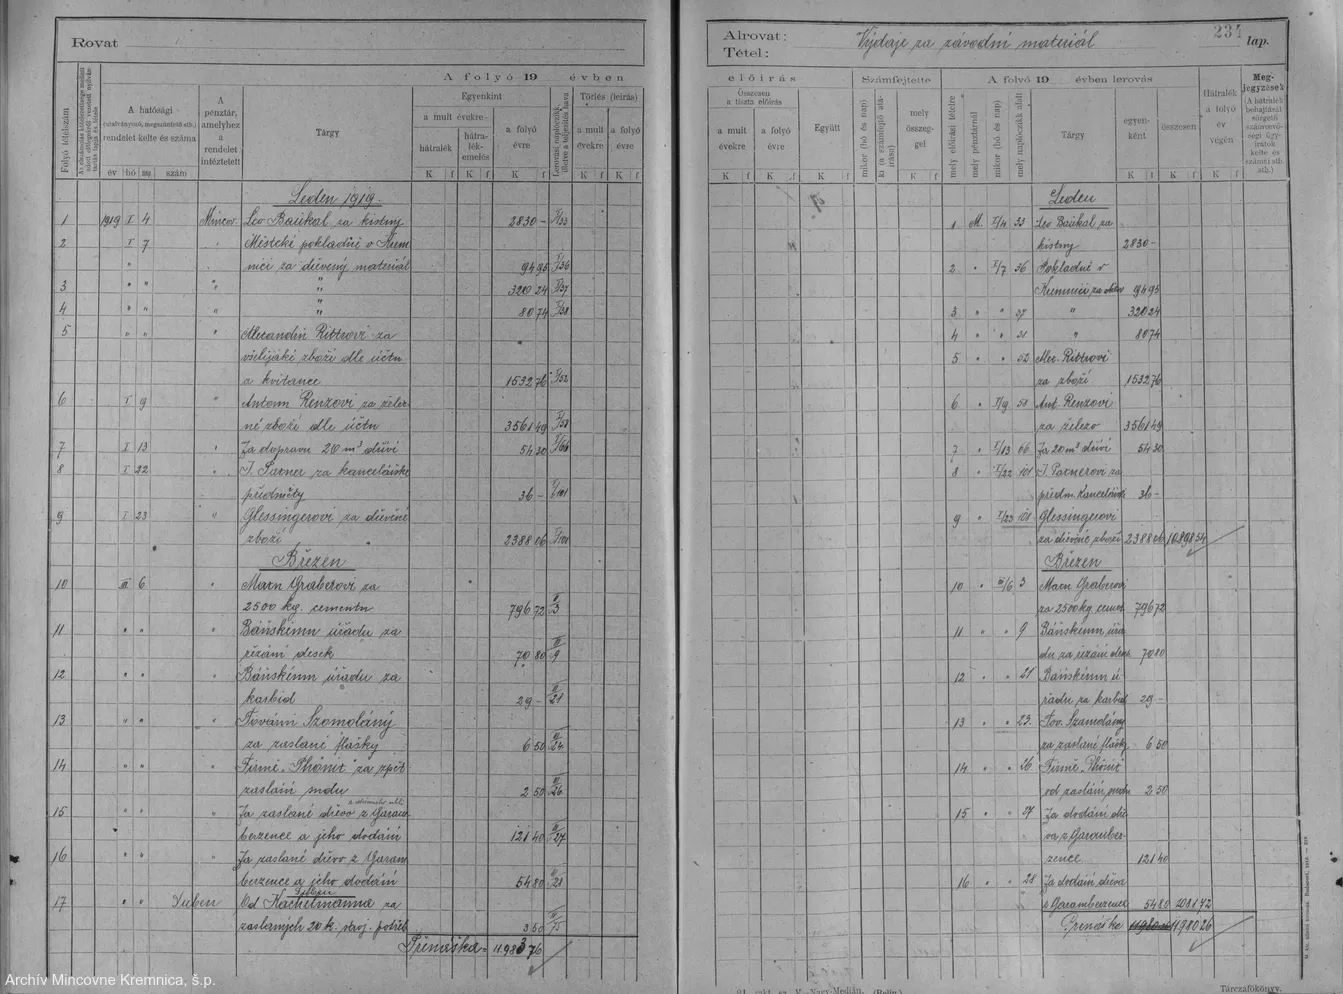 Rovat
A folyó 19 évben
Folyó tételszám
A hatósági
(utalványozó, megszüntető stb.)
rendelet kelte és száma
év hó nap szám
A pénztár, amelyhez a rendelet intéztetett
Tárgy
Egyenkint
a mult évekre
hátralék
hátra-lék-emelés
a folyó évre
Törlés (leirás)
a mult évekre
a folyó évre
K f K f K f K f K f
Leden 1919.
1 1919 I 4 Mincov. Leo Baukal za kistny 2830 – I/33
2 I 7 " Městské pokladně v Krem
nici za dřevený materiál 94 95 I/36
3 " " " " 320 24 I/37
4 " " " " 80 74 I/38
5 " " " Alexandru Rittrovi za
všelijaké zboží dle účtu
a kvitance 1532 76 I/52
6 I 9 " Antonín Renzovi za želez-
né zboží dle účtu 3561 49 I/58
7 I 13 " Za dopravu 20 m³ dříví 54 30 I/66
8 I 22 " J. Paxner za kancelářske
předměty 36 – I/101
9 I 23 " Glessingerovi za dřevěné
zboží 2388 06 I/101
Březen
10 III 6 " Marn Graberovi za
2500 kg. cementu 796 72 III/3
11 " " " Báňskému úřadu za
řezání desek 70 80 III/9
12 " " Báňskému úřadu za
karbid 29 – III/21
13 " " " Továrni Szomolány
za zaslané flašky 6 50 III/24
14 " " " Firmě "Phönix" za zpět
zaslání sudu 2 50 III/26
15 " " " Za zaslané dřevo z Garam
berzence a jeho dodání 121 40 III/27
16 " " " Za zaslané dřevo z Garam
berzence a jeho dodání 54 80 III/28
Duben
17 " " Duben Od Kachelmanna za
zaslaných 20 k. stroj. potřeb 3 50
Přenáška = 11.983 76
Alrovat: Výdaje za závodní materiál 234 lap.
Tétel:
előirás
Összesen a tiszta előirás
a mult évekre
a folyó évre
Együtt
Számfejtette
mikor (hó és nap)
ki (a számfejtő aláirása)
mely összeggel
A folyó 19 évben lerovás
mely előirási tételre
mely pénztárnál
mikor (hó és nap)
mely naplócikk alatt
Tárgy
egyenként
összesen
Hátralék a folyó év végén
Megjegyzések
(A hátralék behajtását sürgető számvevőségi ügyiratok kelte és számai stb. stb.)
K f K f K f K f K f K f K f
Leden
1 M. I/4 33 Leo Baukal za
kistny 2830 –
2 " I/7 36 Pokladně v
Kremnici za dřev 94 95
3 " " 37 " 320 24
4 " " 38 " 80 74
5 " " 52 Alex. Rittrovi
za zboží 1532 76
6 " I/9 58 Ant. Renzovi
za železo 3561 49
7 " I/13 66 Za 20 m³ dříví 54 30
8 " I/22 101 J. Paxnerovi za
předm. kancelářské 36 –
9 " I/23 101 Glessingerovi
za dřevěné zboží 2388 06 10898 54
Březen
10 " III/6 3 Marn Graberovi
za 2500 kg. cemet 796 72
11 " " 9 Báňskému úřa
du za řezání desek 70 80
12 " " 21 Báňskému ú
řadu za karbid 29 –
13 " " 23. Tov. Szomolány
za zaslané flašky 6 50
14 " " 26 Firmě "Phönix"
od zaslání sudu 2 50
15 " " 27 Za dodání dře
va z Garamber-
zence 121 40
16 " " 28 Za dodání dřeva
z Garamberzence 54 80 1081 72
Přenáška 11980 26
V.—Nagy-Medián. (Berlin.)
Tárczafőkönyv.
Archív Mincovne Kremnica, š.p.